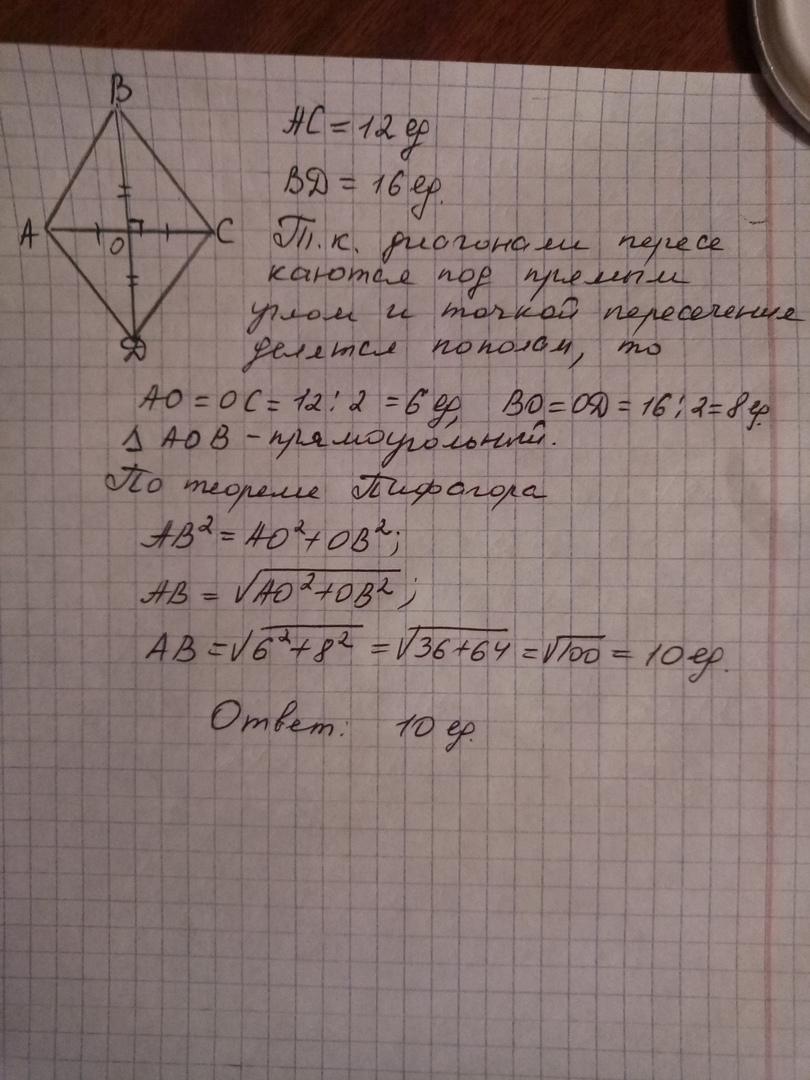 B
A
O
C
D
AC = 12 ед
BD = 16 ед.
Т.к. диагонами пересе
каются под прямым
углом и точкой пересечения
делятся пополам, то
AO = OC = 12 : 2 = 6 ед, BO = OD = 16 : 2 = 8 ед.
Δ AOB - прямоугольный.
По теореме Пифагора
AB² = AO² + OB²;
AB = √(AO² + OB²);
AB = √(6² + 8²) = √(36 + 64) = √100 = 10 ед.
Ответ: 10 ед.